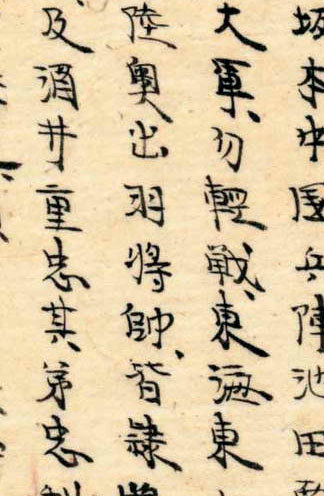 坂本中国兵陣池田
大軍、勿輕戰、東海東
陸奧出羽將帥、皆隷
及酒井重忠其弟忠利